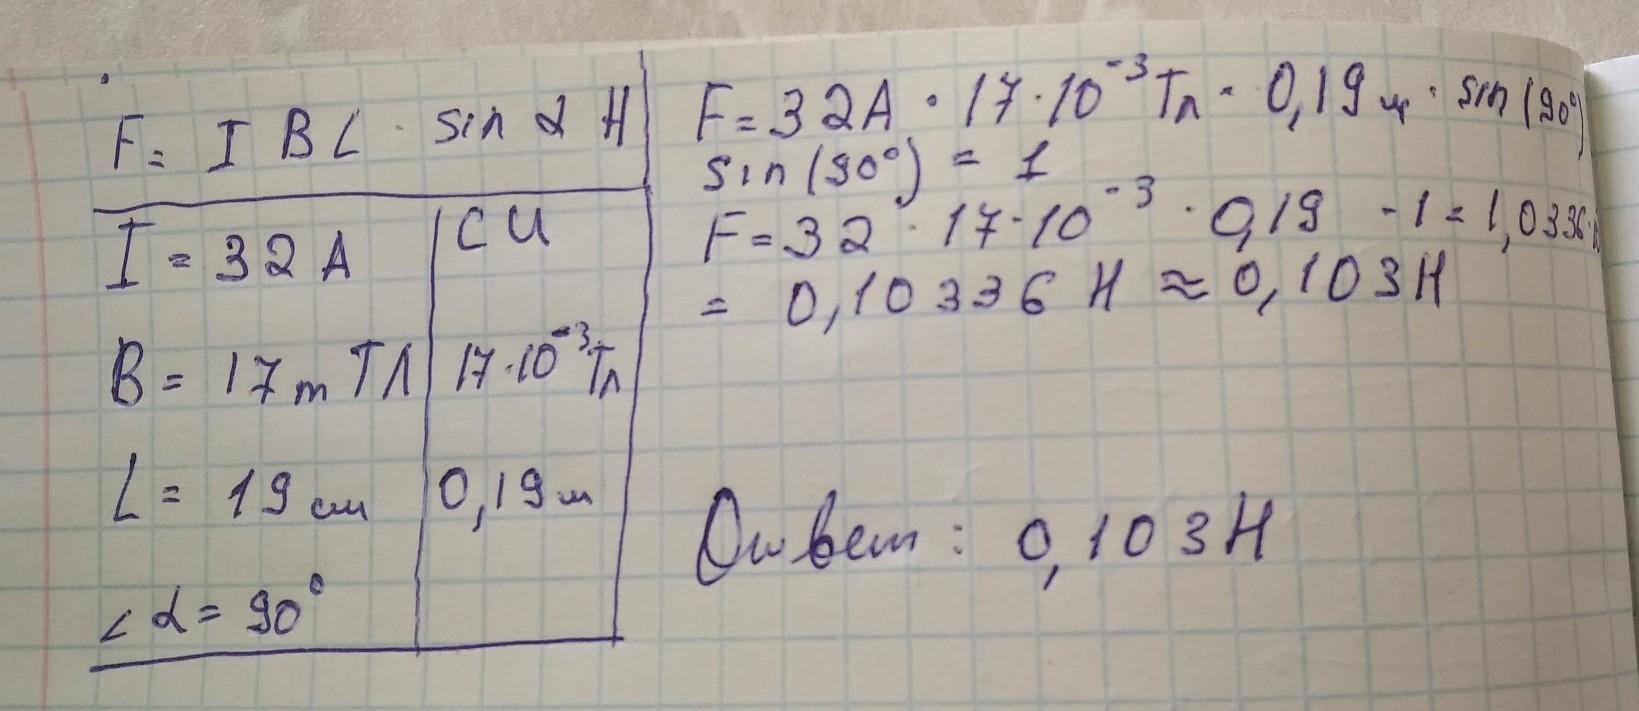 F = I B L · sin α Н
I = 32 А
СИ
B = 17 m Тл
17·10⁻³ Тл
L = 19 см
0,19 м
∠ α = 90°
F = 32А · 17·10⁻³ Тл · 0,19 м · sin (90°)
sin (90°) = 1
F = 32 · 17·10⁻³ · 0,19 · 1 = 1,0336
= 0,10336 Н ≈ 0,103Н
Ответ: 0,103Н